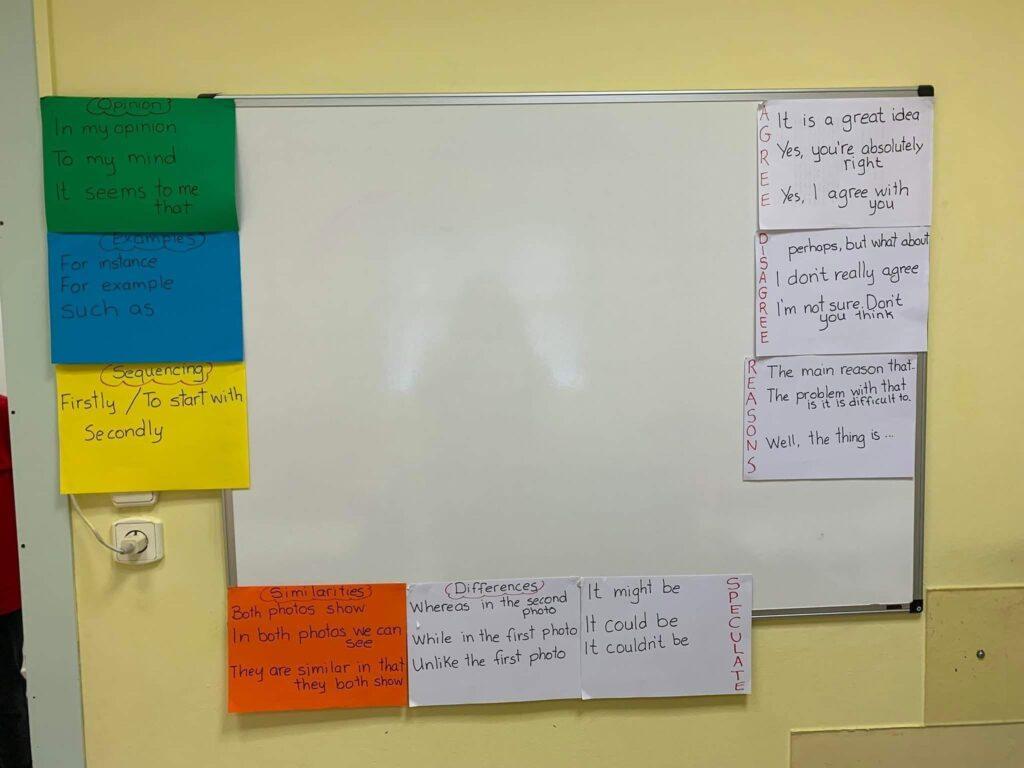 Opinion
In my opinion
To my mind
It seems to me
that
Examples
For instance
For example
such as
Sequencing
Firstly / To start with
Secondly
Similarities
Both photos show
In both photos we can
see
They are similar in that
they both show
Differences
Whereas in the second
photo
While in the first photo
Unlike the first photo
SPECULATE
It might be
It could be
It couldn't be
AGREE
It is a great idea
Yes, you're absolutely
right
Yes, I agree with
you
DISAGREE
perhaps, but what about
I don't really agree
I'm not sure. Don't
you think
REASONS
The main reason that..
The problem with that
is it is difficult to.
Well, the thing is ...